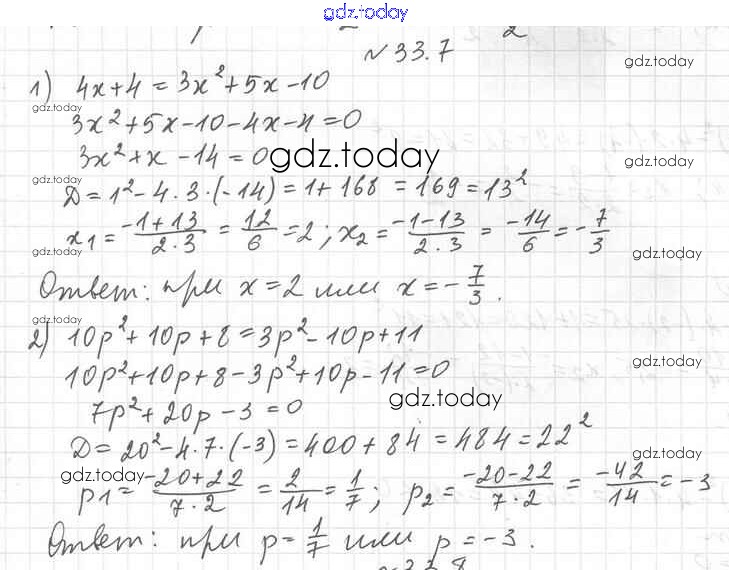 gdz.today
№33.7
gdz.today
1) 4x+4=3x²+5x-10
gdz.today
3x²+5x-10-4x-4=0
3x²+x-14=0
gdz.today
gdz.today
gdz.today
D=1²-4·3·(-14)=1+168=169=13²
x₁=(-1+13)/(2·3)=12/6=2; x₂=(-1-13)/(2·3)=-14/6=-7/3
gdz.today
gdz.today
Ответ: при x=2 или x=-7/3.
gdz.today
2) 10p²+10p+8=3p²-10p+11
10p²+10p+8-3p²+10p-11=0
gdz.today
gdz.today
7p²+20p-3=0
gdz.today
D=20²-4·7·(-3)=400+84=484=22²
gdz.today
gdz.today
p₁=(-20+22)/(7·2)=2/14=1/7; p₂=(-20-22)/(7·2)=-42/14=-3
Ответ: при p=1/7 или p=-3.